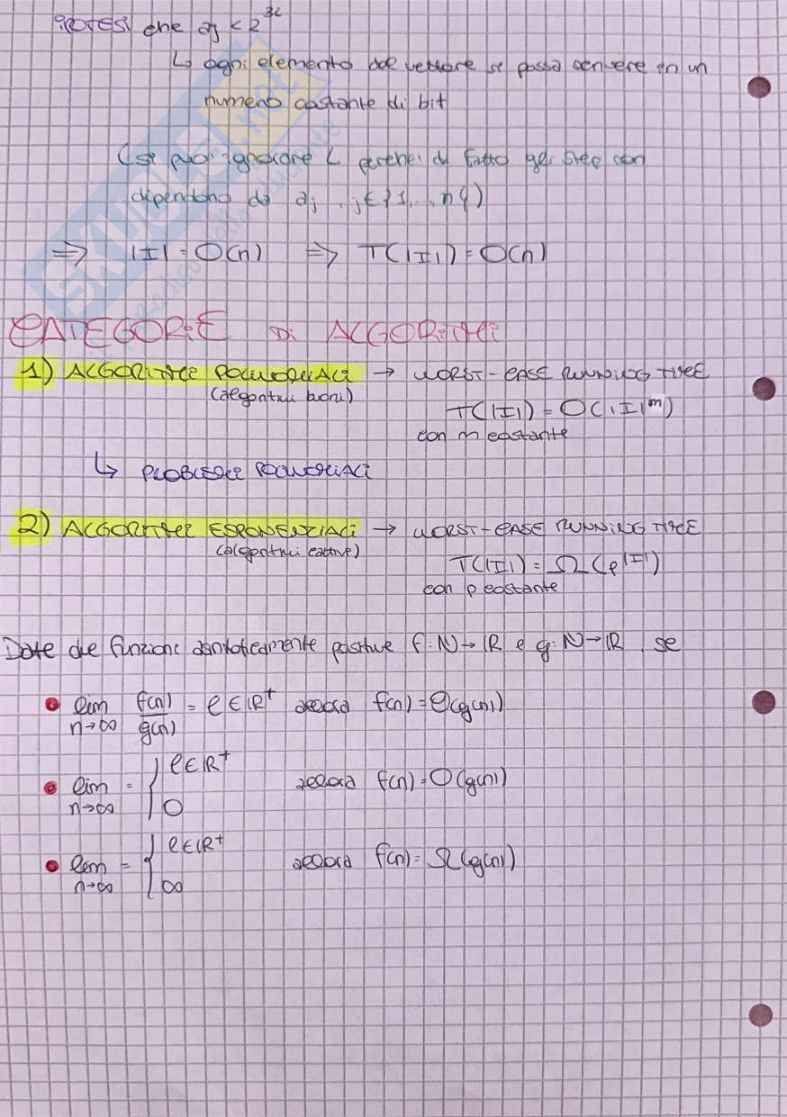 ipotesi che aj < 2^32
↳ ogni elemento del vettore si possa scrivere in un
numero costante di bit
(si può ignorare L perché di fatto gli step non
dipendono da aj, j ∈ {1, ..., n})
⇒ |I| = O(n) ⇒ T(|I|) = O(n)
CATEGORIE DI ALGORITMI
1) ALGORITMI POLINOMIALI → WORST-CASE RUNNING TIME
(algoritmi buoni) T(|I|) = O(|I|^m)
con m costante
↳ PROBLEMI POLINOMIALI
2) ALGORITMI ESPONENZIALI → WORST-CASE RUNNING TIME
(algoritmi cattivi) T(|I|) = Ω(p^|I|)
con p costante
Date due funzioni asintoticamente positive f: N → R e g: N → R, se
• lim n→∞ f(n)/g(n) = l ∈ R+ allora f(n) = Θ(g(n))
• lim n→∞ = { l ∈ R+ 0 allora f(n) = O(g(n))
• lim n→∞ = { l ∈ R+ ∞ allora f(n) = Ω(g(n))
SKUOLA.net